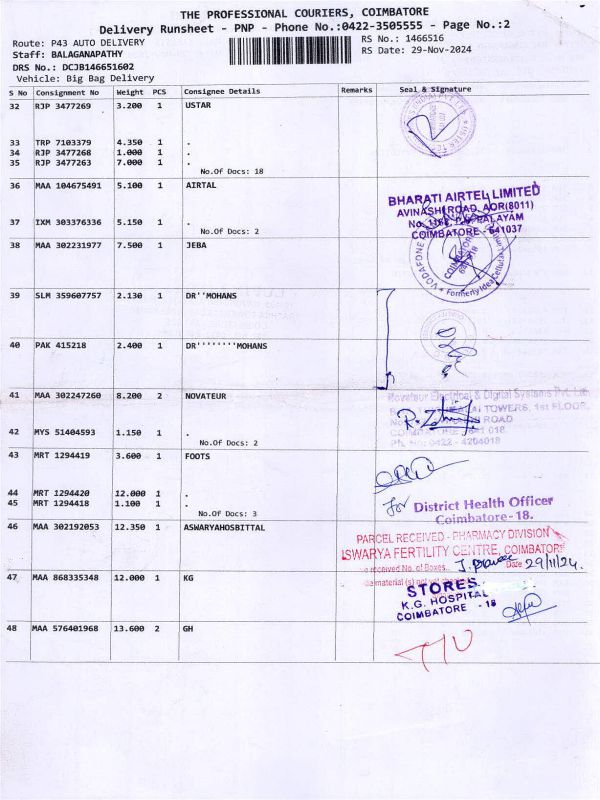 THE PROFESSIONAL COURIERS, COIMBATORE
Delivery Runsheet - PNP - Phone No.:0422-3505555 - Page No.:2
Route: P43 AUTO DELIVERY
RS No.: 1466516
Staff: BALAGANAPATHY
RS Date: 29-Nov-2024
DRS No.: DCJB146651602
Vehicle: Big Bag Delivery
S No Consignment No Weight PCS Consignee Details Remarks Seal & Signature
32 RJP 3477269 3.200 1 USTAR
33 TRP 7103379 4.350 1 .
34 RJP 3477268 1.000 1 .
35 RJP 3477263 7.000 1 .
No.Of Docs: 18
36 MAA 104675491 5.100 1 AIRTAL
BHARATI AIRTEL LIMITED
AVINASHI ROAD, AOR(8011)
PALAYAM
COIMBATORE - 641037
37 IXM 303376336 5.150 1 .
No.Of Docs: 2
38 MAA 302231977 7.500 1 JEBA
VODAFONE
COIMBATORE
Formerly Idea Cellular
39 SLM 359607757 2.130 1 DR''MOHANS
40 PAK 415218 2.400 1 DR''''''''MOHANS
41 MAA 302247260 8.200 2 NOVATEUR
Novateur Electrical & Digital Systems Pvt. Ltd.
TOWERS, 1st FLOOR,
ROAD
641 018.
0422 - 4204018
42 MYS 51404593 1.150 1 .
No.Of Docs: 2
43 MRT 1294419 3.600 1 FOOTS
44 MRT 1294420 12.000 1 .
45 MRT 1294418 1.100 1 .
No.Of Docs: 3
for District Health Officer
Coimbatore-18.
46 MAA 302192053 12.350 1 ASWARYAHOSBITTAL
PARCEL RECEIVED - PHARMACY DIVISION
ISWARYA FERTILITY CENTRE, COIMBATORE
received No. of Boxes Date 29/11/24.
material (s) not yet
47 MAA 868335348 12.000 1 KG
STORES
K.G. HOSPITAL
COIMBATORE - 18
48 MAA 576401968 13.600 2 GH